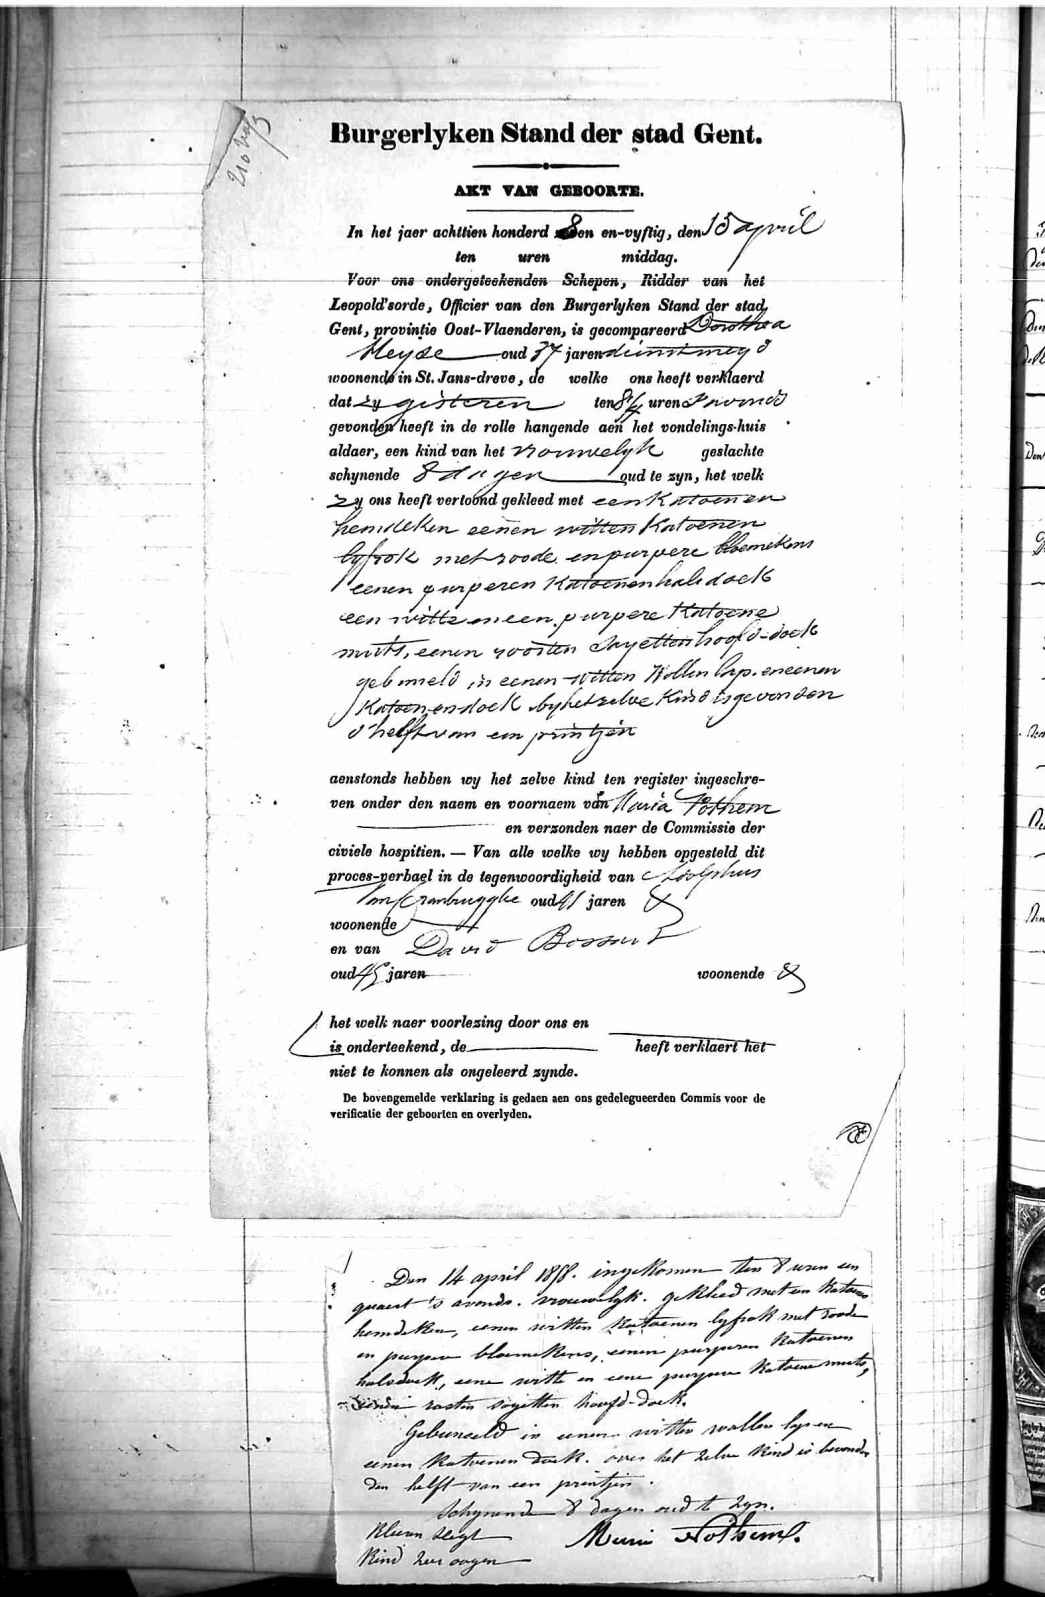 Burgerlyken Stand der stad Gent.
AKT VAN GEBOORTE.
In het jaer achttien honderd 8en en-vyftig, den 15 april
ten uren middag.
Voor ons ondergeteekenden Schepen, Ridder van het
Leopold'sorde, Officier van den Burgerlyken Stand der stad
Gent, provintie Oost-Vlaenderen, is gecompareerd Dorothea
Heyse oud 37 jaren dienstmeyd
woonende in St. Jans-dreve, de welke ons heeft verklaerd
dat zy gisteren ten 8¼ uren s'avonds
gevonden heeft in de rolle hangende aen het vondelings-huis
aldaer, een kind van het vrouwelyk geslachte
schynende 8 dagen oud te zyn, het welk
zy ons heeft vertoond gekleed met een Katoenen
hemdeken eenen witten Katoenen
lyfrok met roode en purpere bloemekens
eenen purperen Katoenen halsdoek
een witte en een purpere Katoene
muts, eenen rosten sayetten hoofd-doek
gebunseld in eenen witten Wollen lap en eenen
Katoenen doek by het zelve Kind is gevonden
d'helft van een printjen
aenstonds hebben wy het zelve kind ten register ingeschre-
ven onder den naem en voornaem van Maria Pothem
en verzonden naer de Commissie der
civiele hospitien. — Van alle welke wy hebben opgesteld dit
proces-verbael in de tegenwoordigheid van Adolphus
Van Crombrugghe oud 41 jaren &
woonende
en van David Bossaert
oud 45 jaren woonende &
het welk naer voorlezing door ons en
is onderteekend, de heeft verklaert het
niet te konnen als ongeleerd zynde.
De bovengemelde verklaring is gedaen aen ons gedelegueerden Commis voor de
verificatie der geboorten en overlyden.
Den 14 april 1858. ingekomen ten 8 uren een
quaert 's avonds. vrouwelyk. gekleed met een Katoenen
hemdeken, eenen witten katoenen lyfrok met roode
en purpere bloemekens, eenen purperen Katoenen
halsdoek, eene witte en eene purpere Katoene muts,
eenen rosten sayetten hoofd-doek.
Gebunseld in eenen witten wollen lap en
eenen Katoenen doek. over het zelve Kind is bevonden
den helft van een printjen.
Schynende 8 dagen oud te zyn.
Kleur
Kind